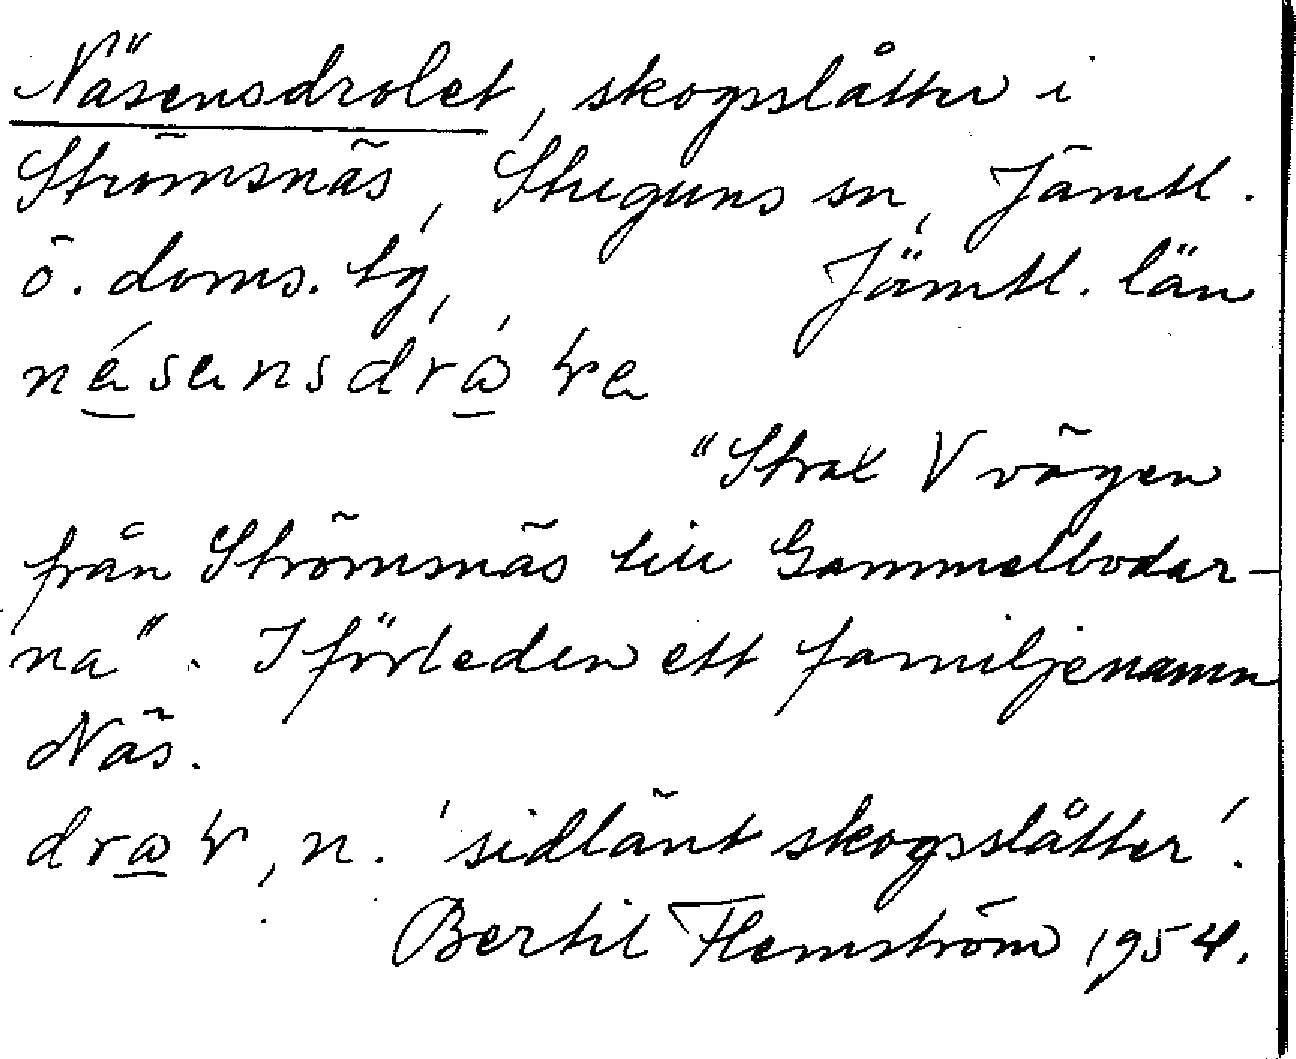 Näsensdrolet, skogsslåtter i
Strömsnäs, Stuguns sn, Jämtl.
ö. doms. tg, Jämtl. län
"Strax V vägen
från Strömsnäs till Gammelbodar-
na". I förleden ett familjenamn
Näs.
n. 'sidlänt skogsslåtter'.
Bertil Flemström 1954.